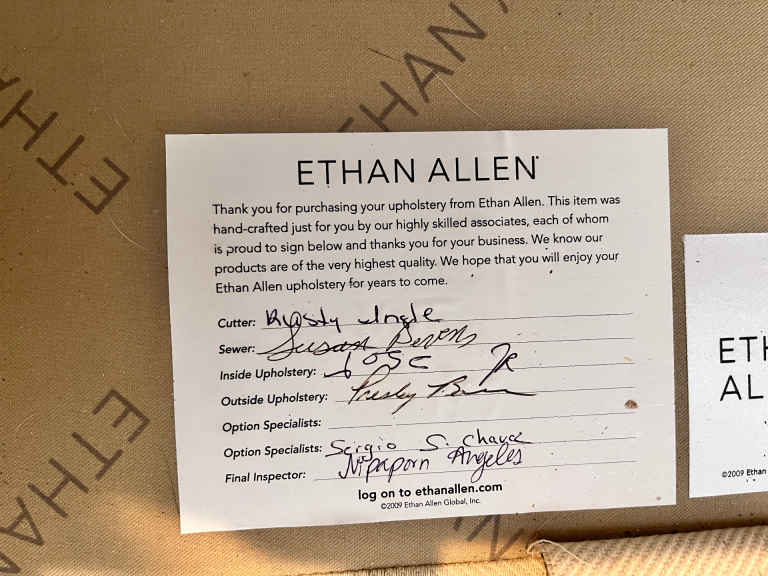 ETHAN
ETHAN
ETHAN
ETHAN ALLEN
Thank you for purchasing your upholstery from Ethan Allen. This item was
hand-crafted just for you by our highly skilled associates, each of whom
is proud to sign below and thanks you for your business. We know our
products are of the very highest quality. We hope that you will enjoy your
Ethan Allen upholstery for years to come.
Cutter: Rusty Ingle
Sewer: Susan
Inside Upholstery: JOSE JR
Outside Upholstery: Presley
Option Specialists:
Option Specialists: Sergio S. Chavez
Final Inspector: Nipaporn Angeles
log on to ethanallen.com
©2009 Ethan Allen Global, Inc.
ETH
AL
©2009 Ethan